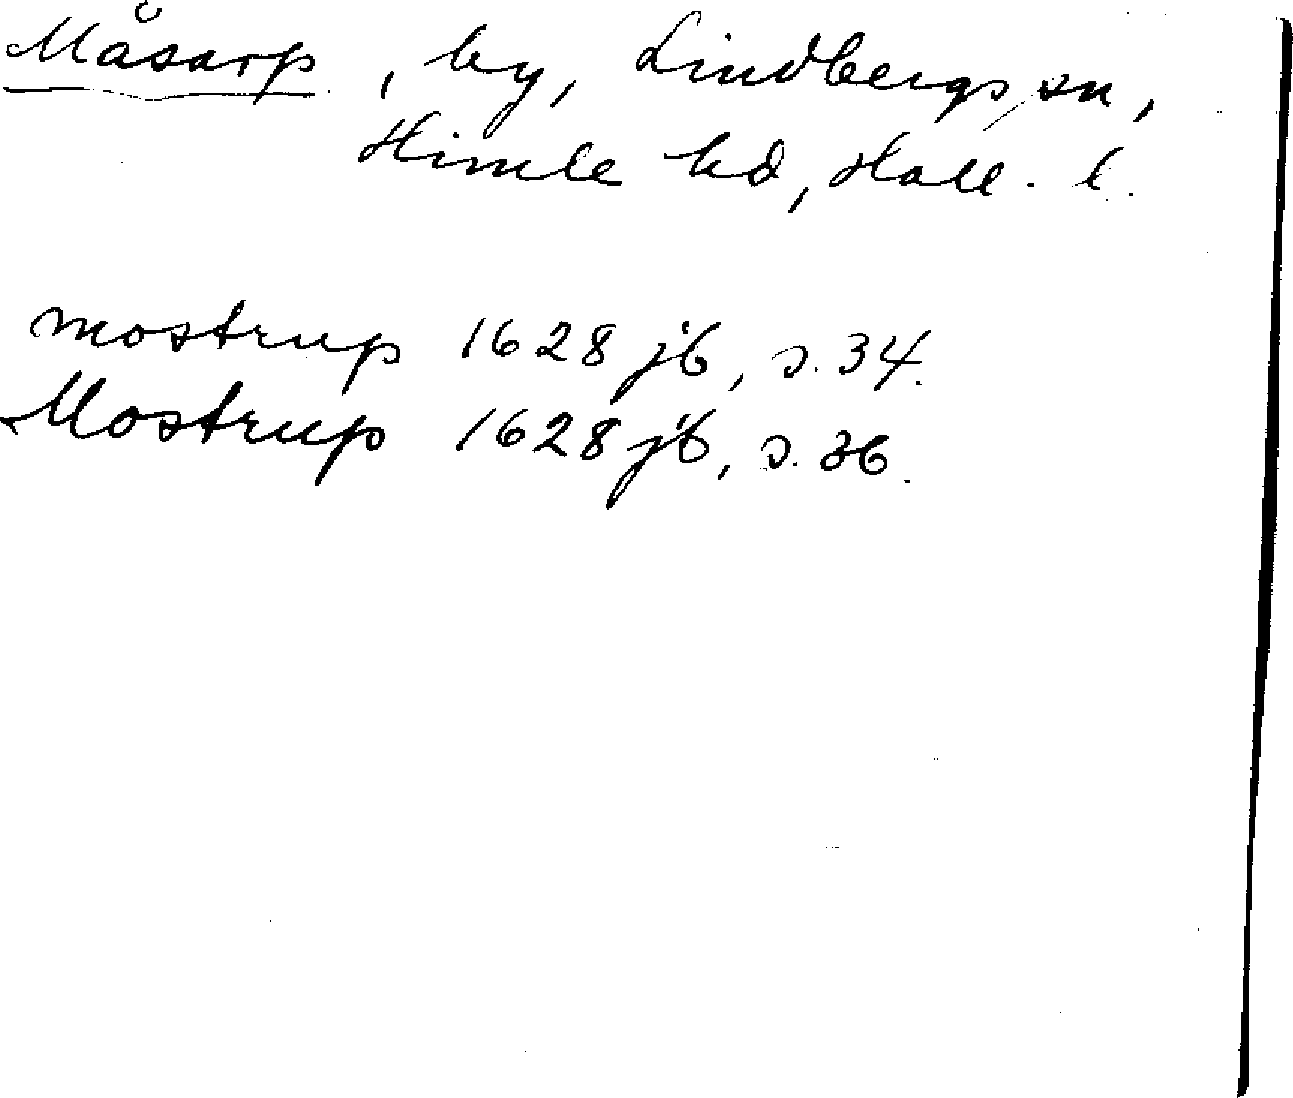 Måsarp, by, Lindbergs sn,
Himle hd, Hall. l.
mostrup 1628 jb, s. 34.
Mostrup 1628 jb, s. 36.